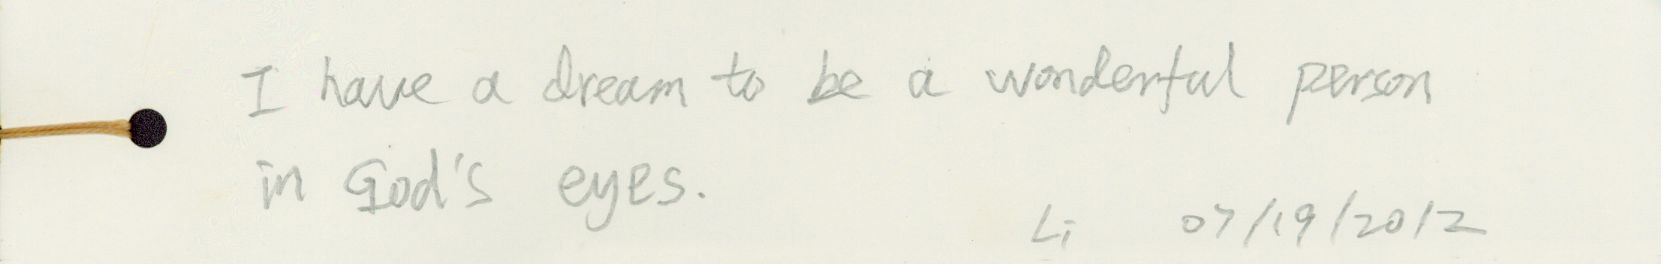 I have a dream to be a wonderful person
in God's eyes.
Li 07/19/2012